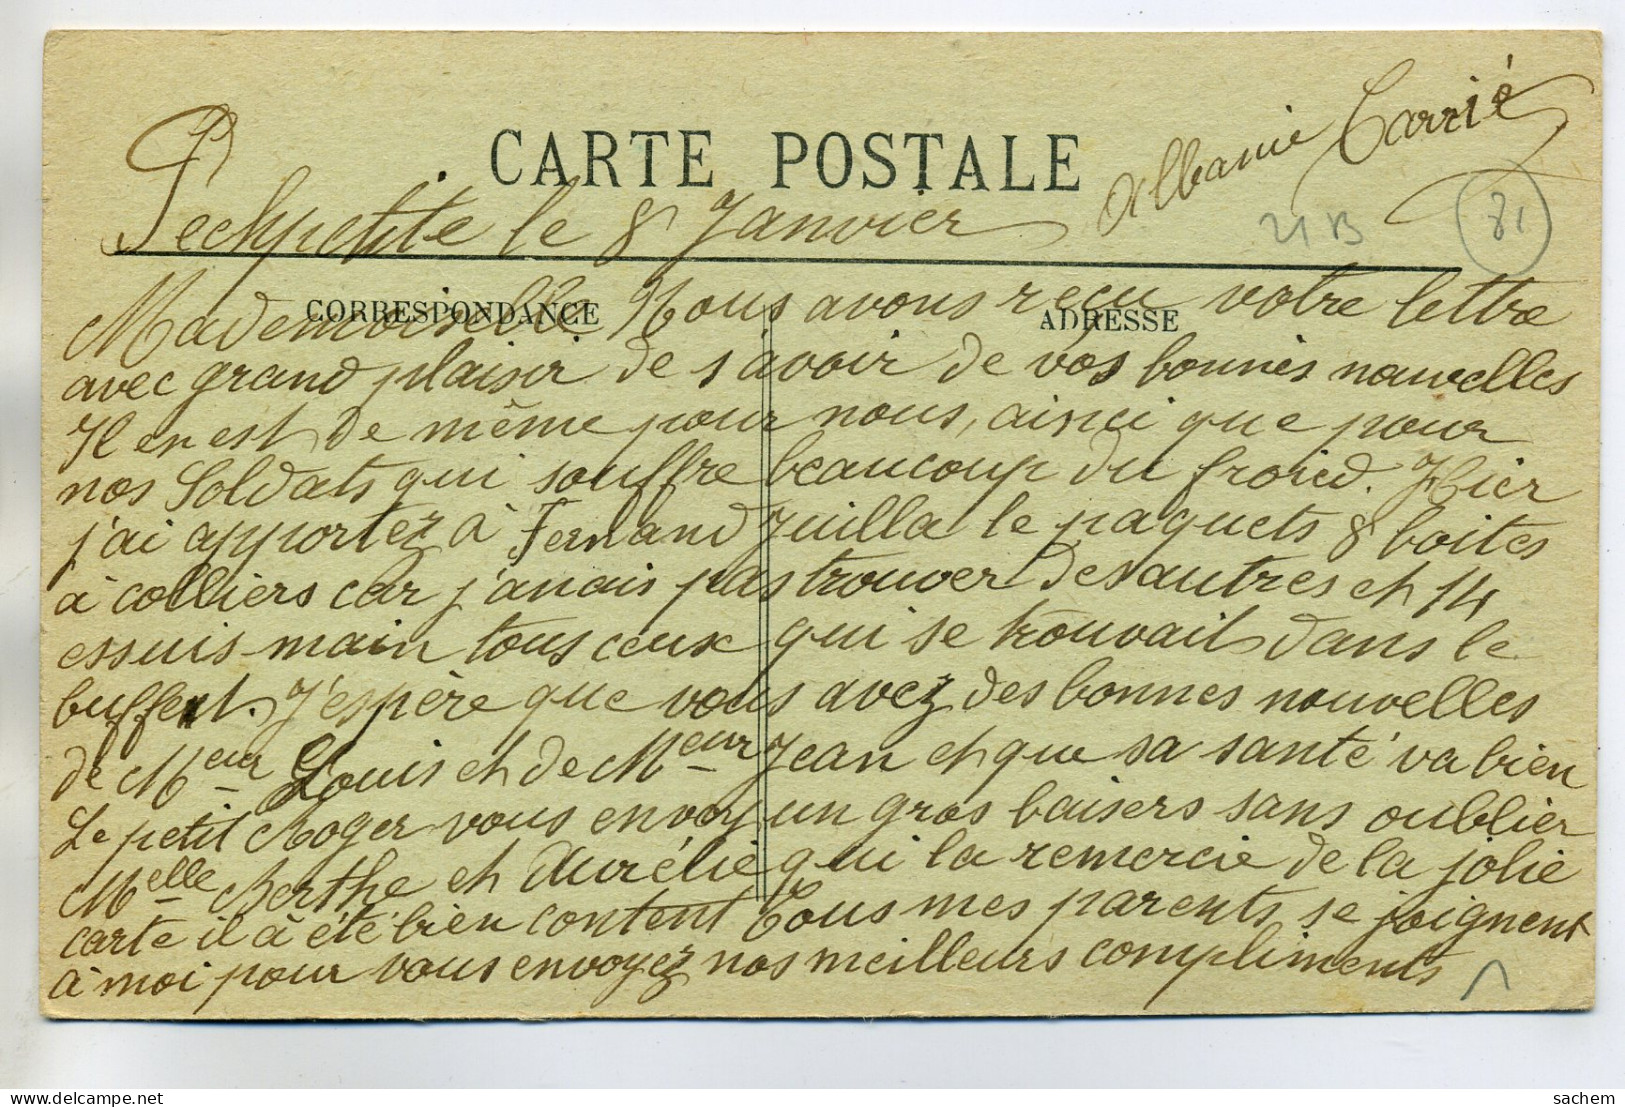 CARTE POSTALE
Albanie Carrié
Pechpetite le 8 Janvier
21 B
81
CORRESPONDANCE
ADRESSE
Mademoiselle Nous avons reçu votre lettre
avec grand plaisir de savoir de vos bonnes nouvelles
Il en est de même pour nous, ainci que pour
nos Soldats qui souffre beaucoup du froied. Hier
j'ai apportez à Fernand Juilla le paquets 8 boites
à colliers car j'anais pas trouver des autres et 14
essuis-main tous ceux qui se trouvait dans le
buffent. J'espère que vous avez des bonnes nouvelles
de Meur Louis et de Meur Jean et que sa santé va bien
Le petit Roger vous envoy un gros baisers sans oublier
Melle Berthe et Aurélie qui la remercie de la jolie
carte il à été bien content Tous mes parents se joignent
à moi pour vous envoyez nos meilleurs compliments
sachem
delcampe.net